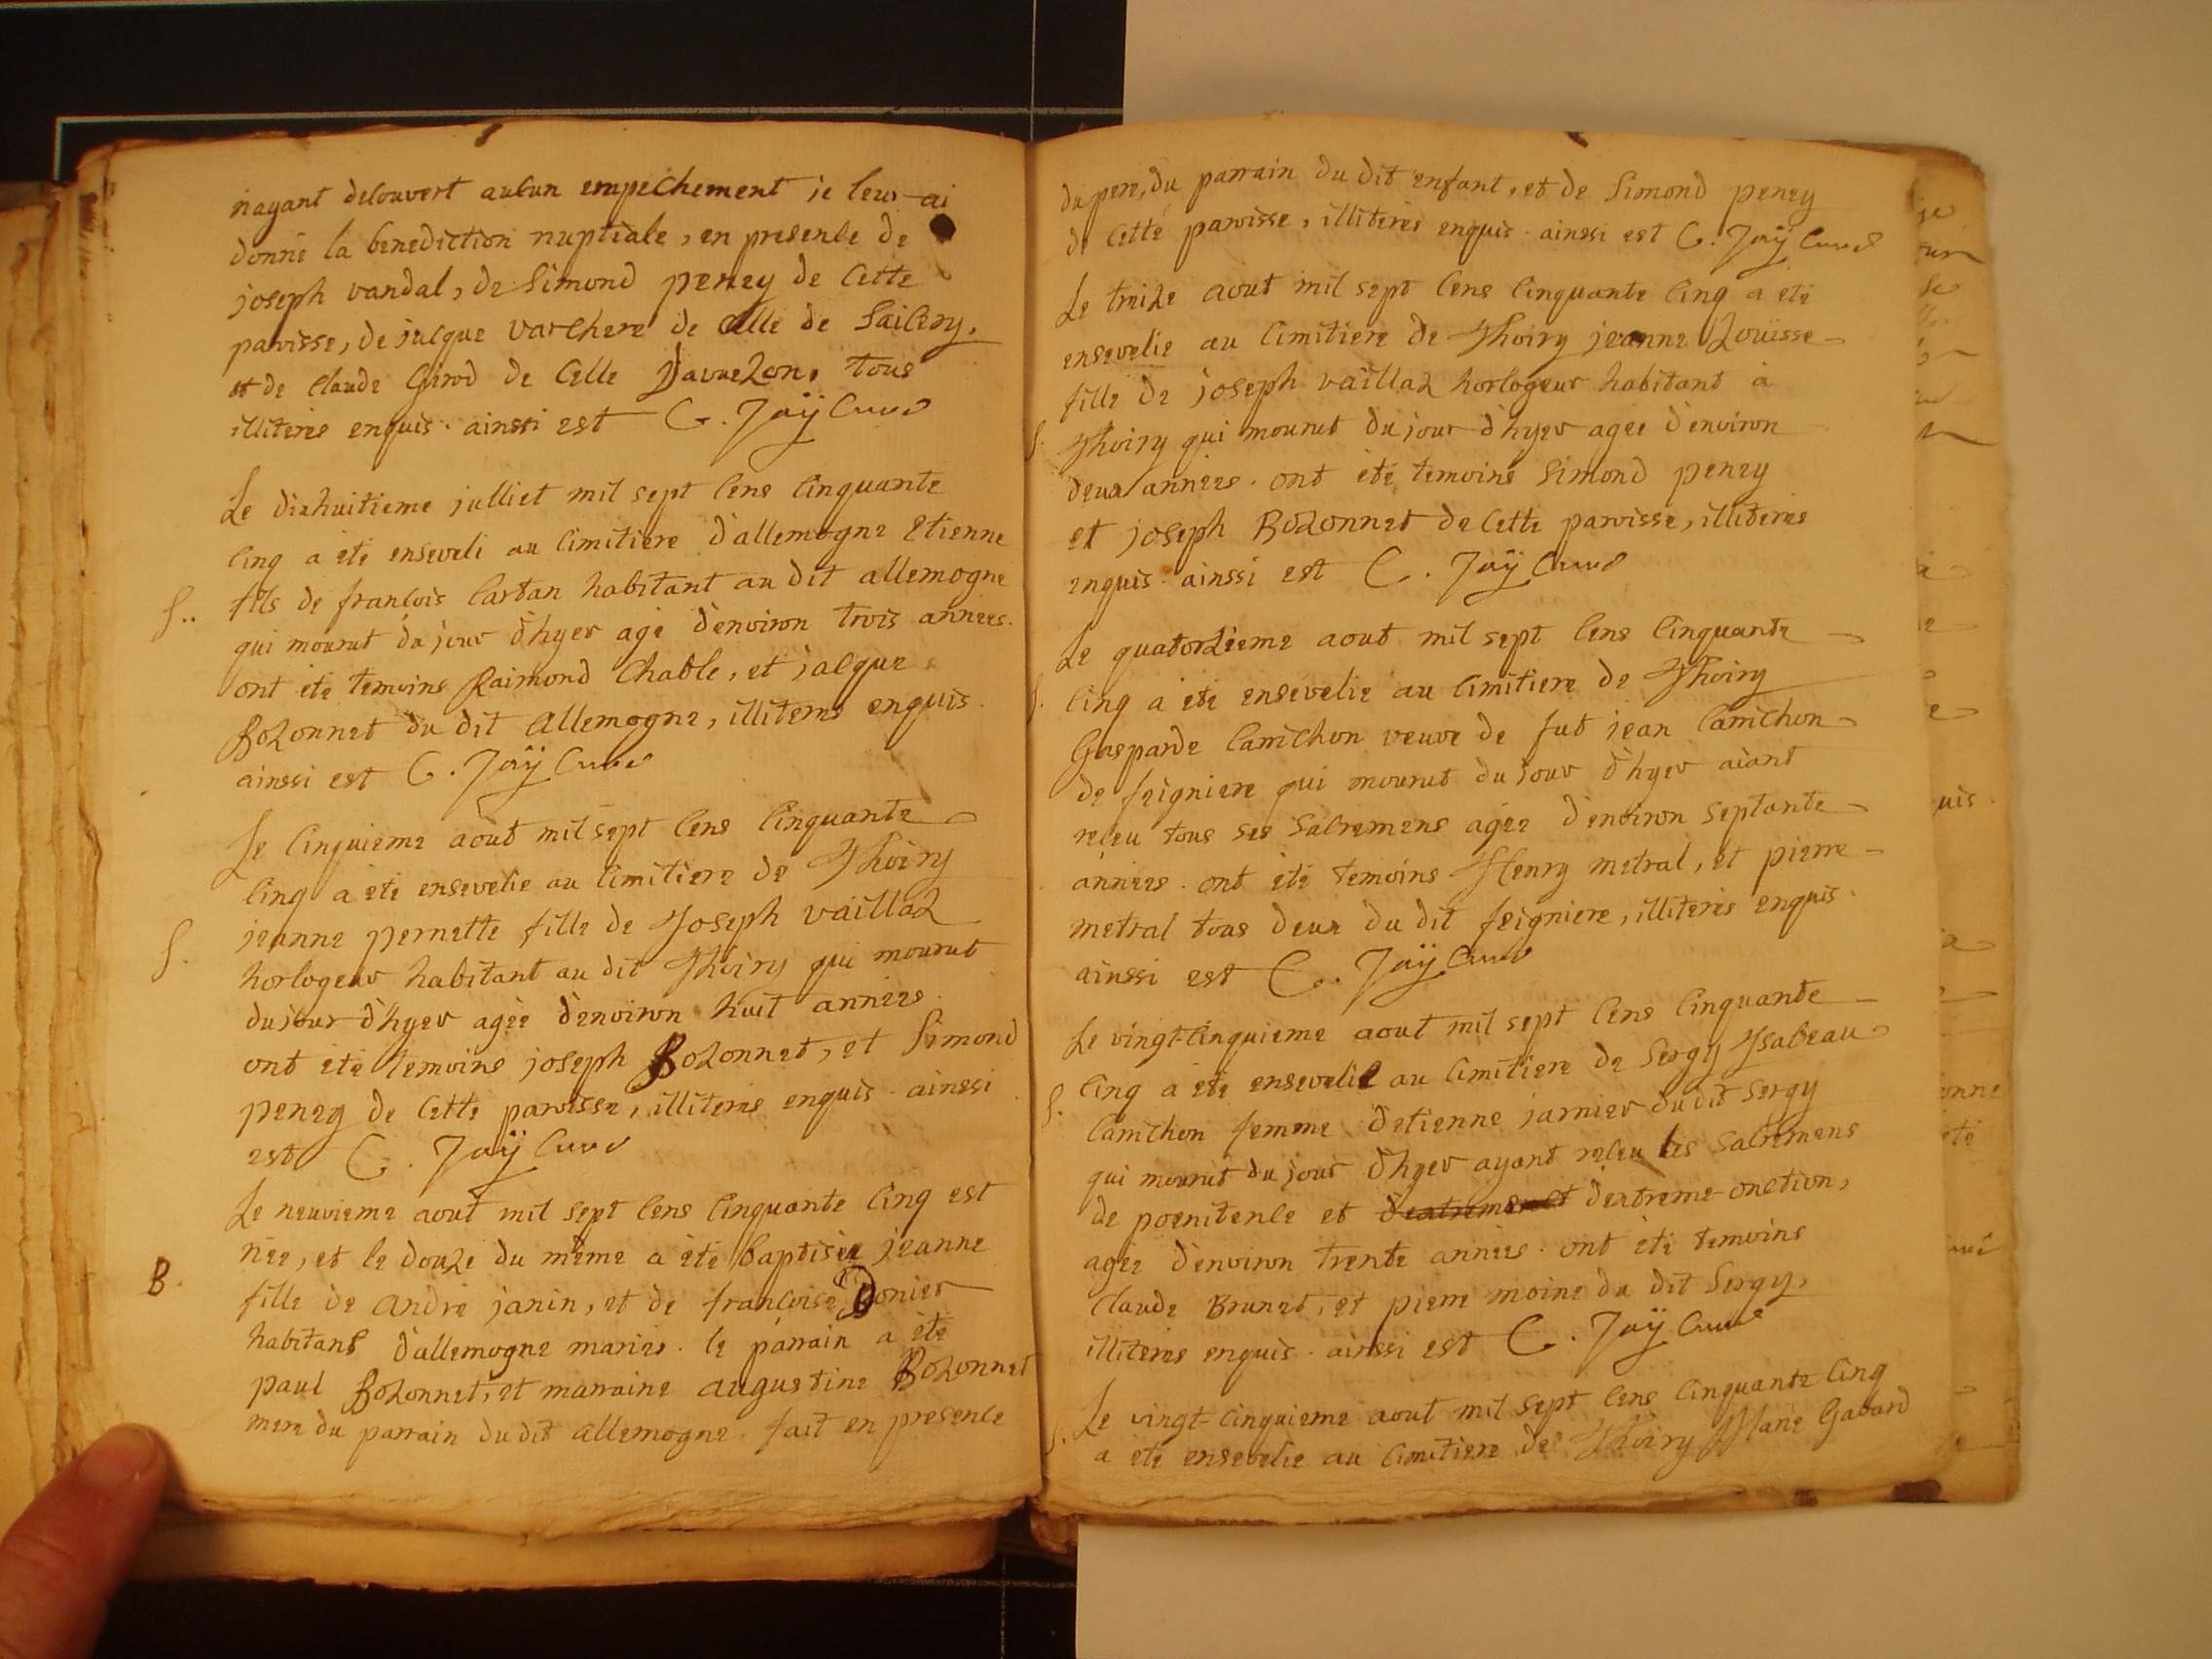 nayant decouvert aucun empechement je leur ai
donné la benediction nuptiale, en presence de
joseph vandal, de Simond peney de cette
paroisse, de jacque varchere de celle de
et de claude Girod de celle tous
illiterés enquis. ainssi est C. Jaÿ Curé
Le dixhuitieme julliet mil sept cens cinquante
cinq a été enseveli au cimitiere d'allemogne Etienne
S.. fils de francois Castan habitant au dit allemogne
qui mourut du jour d'hyer agé d'environ trois années.
ont été temoins Raimond Chable, et jacque
Bozonnet du dit allemogne, illiterés enquis.
ainssi est C. Jaÿ Curé
Le cinquieme aout mil sept cens cinquante
cinq a été ensevelie au cimitiere de Thoiry
S. jeanne pernette fille de Joseph vaillaz
horlogeur habitant au dit Thoiry qui mourut
du jour d'hyer agée d'environ huit années.
ont été temoins joseph Bozonnet, et Simond
peney de cette paroisse, illiterés enquis. ainssi
est C. Jaÿ Curé
Le neuvieme aout mil sept cens cinquante cinq est
née, et le douze du même a été baptisée jeanne
B. fille de andré janin, et de francoise
habitans d'allemogne mariés. le parrain a été
paul Bozonnet, et marraine augustine Bozonnet
mere du parrain du dit allemogne. fait en presence
du pere, du parrain du dit enfant, et de Simond peney
de cette paroisse, illiterés enquis. ainssi est C. Jaÿ Curé
Le treize aout mil sept cens cinquante cinq a été
ensevelie au cimitiere de Thoiry jeanne Louïsse
fille de joseph vaillaz horlogeur habitant a
S. Thoiry qui mourut du jour d'hyer agée d'environ
deux années. ont été temoins Simond peney
et joseph Bozonnet de cette paroisse, illiterés
enquis. ainssi est C. Jaÿ Curé
Le quatorzieme aout mil sept cens cinquante
S. cinq a été ensevelie au cimitiere de Thoiry
Gasparde Canichon veuve de fut jean Canichon
de feigniere qui mourut du jour d'hyer aiant
receu tous ses Sacremens agée d'environ septante
années. ont été temoins Henry metral, et pierre
metral tous deux du dit feigniere, illiterés enquis.
ainssi est C. Jaÿ Curé
Le vingt-cinquieme aout mil sept cens cinquante
S. cinq a été ensevelie au cimitiere de Sergy Ysabeau
Canichon femme d'etienne jarnier du dit Sergy
qui mourut du jour d'hyer ayant receu les Sacremens
de poenitence et d'extreme-onction,
agée d'environ trente années. ont été temoins
Claude Brunet, et pierre moine du dit Sergy,
illiterés enquis. ainssi est C. Jaÿ Curé
S. Le vingt-cinquieme aout mil sept cens cinquante cinq
a été ensevelie au cimitiere de Thoiry Marie Gavard